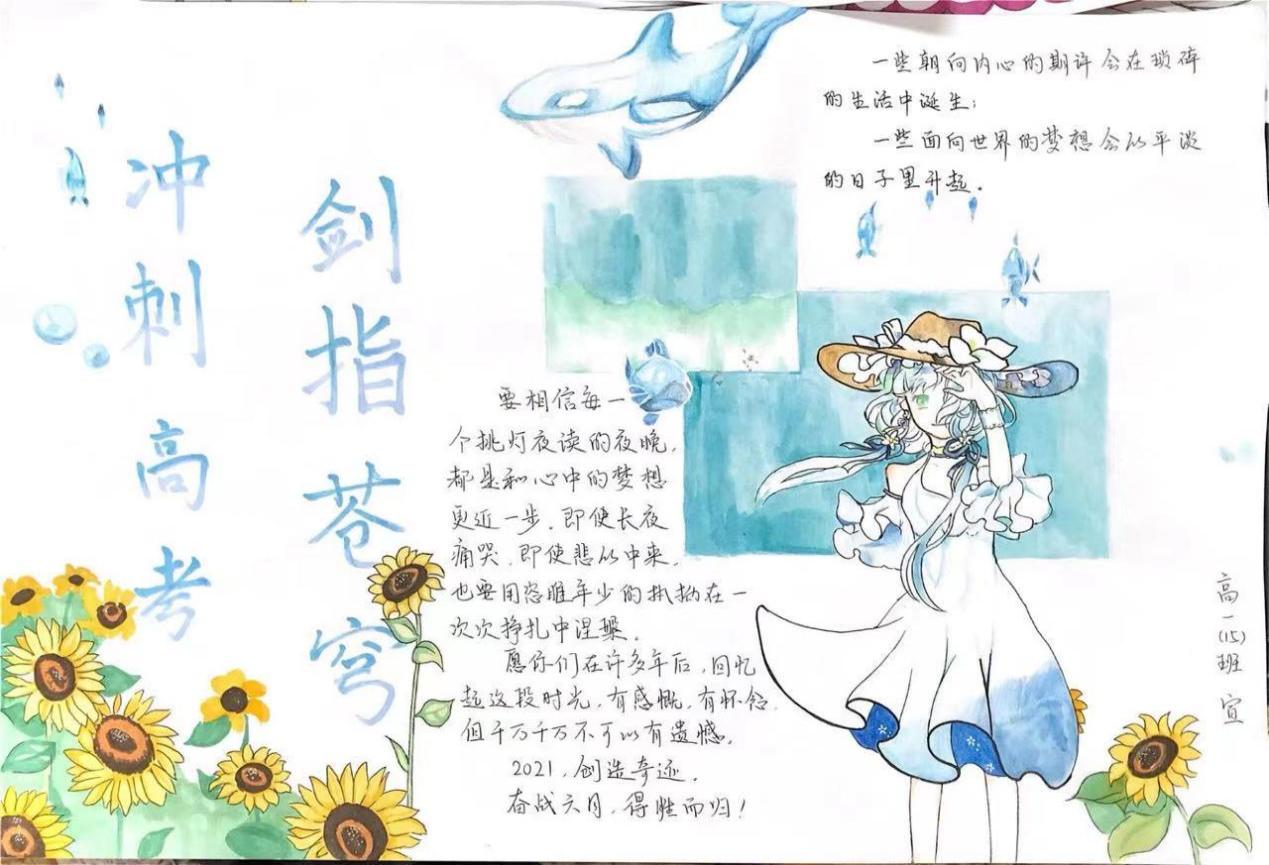 冲刺高考
剑指苍穹
一些朝向内心的期许会在琐碎
的生活中诞生;
一些面向世界的梦想会以平淡
的日子里升起.
要相信每一
个挑灯夜读的夜晚,
都是和心中的梦想
更近一步.即使长夜
痛哭.即使悲从中来.
也要用恣睢年少的执拗在一
次次挣扎中涅槃.
愿你们在许多年后,回忆
起这段时光,有感慨,有怀念.
但千万千万不可以有遗憾.
2021,创造奇迹.
奋战六月,得胜而归!
高一(15)班 宣